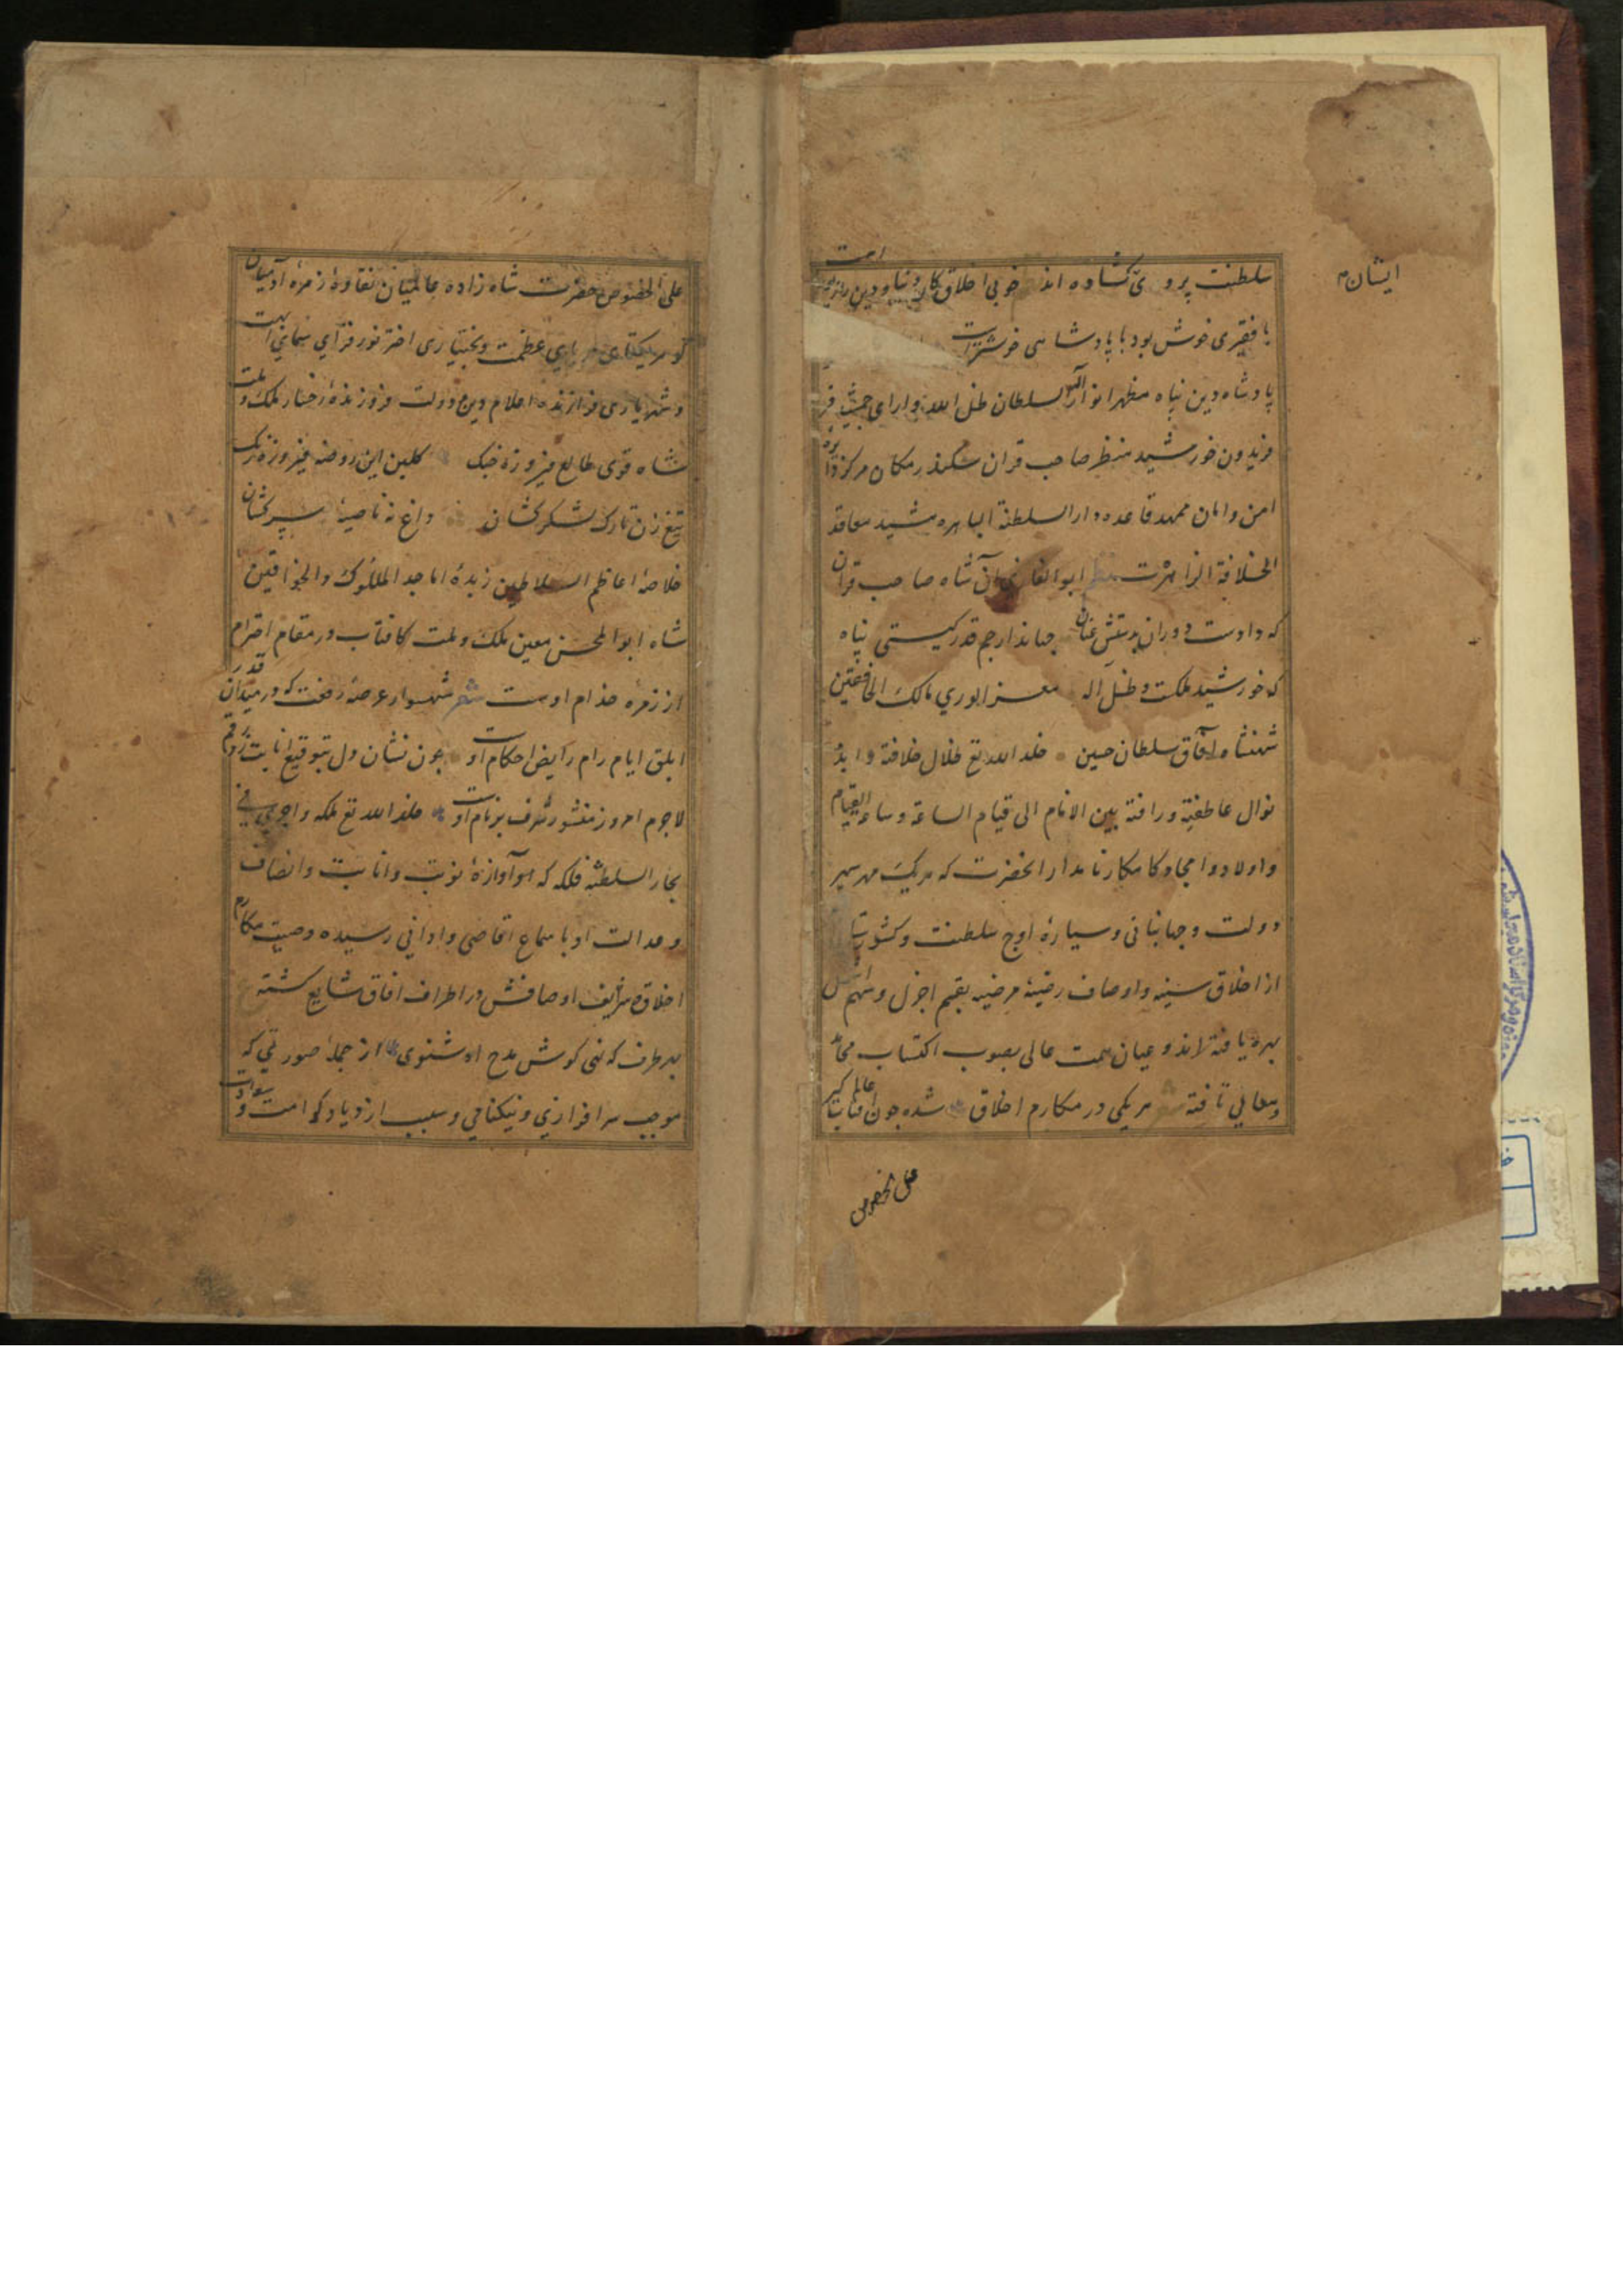 ایشان
سلطنت بروی کشاده اند خوبی اخلاق کار دنیا و دین را زیور است
با فقیری خوش بود با پادشاهی خوشتر است
پادشاه دین پناه مظهر انوار السلطان ظل الله دارای جمشید فر
فریدون خورشید منظر صاحب قران سکندر مکان مرکز دایره
امن و امان ممهد قاعده دار السلطنة الباهره مشید معاقد
الخلافة الزاهرة ابو الغازی آن شاه صاحب قران
که دادست دوران بدستش عنان جهاندار جم قدر کیتی پناه
که خورشید ملکت و ظل اله معز الوری مالک الخافقین
شهنشاه آفاق سلطان حسین خلد الله تع ظلال خلافة و ابد
نوال عاطفته و رافته بین الانام الی قیام الساعة و ساعة القیام
و اولاد و امجاد کامکار نامدار انحضرت که هریک مهر سپهر
دولت و جهانبانی و سیاره اوج سلطنت و کشور
از اخلاق سنیه و اوصاف رضیه مرضیه بقسم اجزل و سهم
بهره یافته اند و عنان همت عالی بصوب اکتساب محامد
و معالی تافته هریکی در مکارم اخلاق شده چون افتاب عالم کیر
علی الخصوص
علی الخصوص حضرت شاه زاده عالمیان نقاوه زمره آدمیان
کوهر یکتای دریای عظمت و بختیاری اختر نور فزای سمای ابهت
و شهریاری فرازنده اعلام دین و دولت فروزنده رخسار ملک و ملت
شاه قوی طالع فیروزه جنک کلبن این روضه فیروزه رنک
تیغ زن تارک لشکر کشان داغ نه ناصیه سرکشان
خلاصه اعاظم السلاطین زبده اماجد الملوک و الخواقین
شاه ابو المحسن معین ملک و ملت کافتاب در مقام احترام
از زمره خدام اوست شعر شهسوار عرصه رفعت که در میدان قدر
ابلق ایام رام رایض احکام اوست چون نشان دل بتوقیع انابت زد رقم
لاجرم امروز منشور شرف بر نام اوست خلد الله تع ملکه و اجری فی
بحار السلطنة فلکه که هم آوازه توبت و انابت و انصاف
و عدالت او با سماع اقاصی و ادانی رسیده و صیت مکارم
اخلاق شریف اوصافش در اطراف افاق شایع کشته
بهر طرف که نهی کوش مدح او شنوی از جمله صورتی که
موجب سرافرازی و نیکنامی و سبب ازدیاد کرامت و